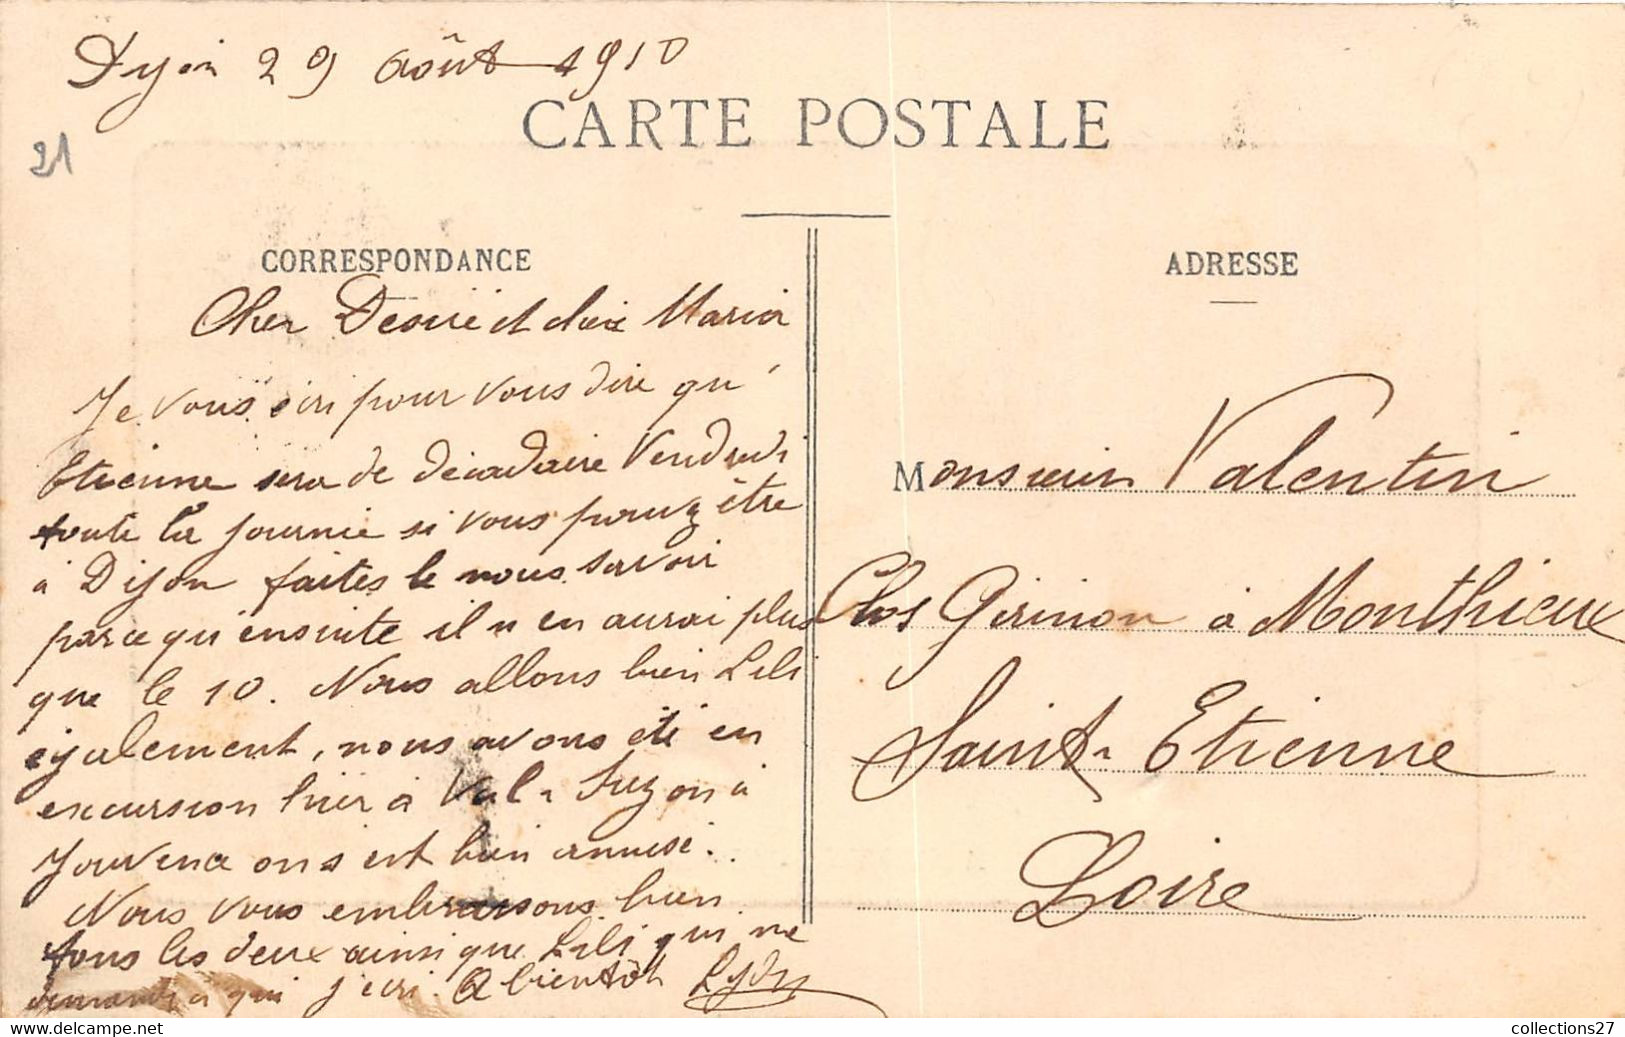 Dijon 29 Août 1910
21
CARTE POSTALE
CORRESPONDANCE
Cher Desiré et chère Maria
Je vous écri pour vous dire qu'
Etienne sera de décadaire Vendredi
toute la journée si vous pouvez être
à Dijon faites le nous savoir
parce qu'ensuite il n en aurai plus
que le 10. Nous allons bien Lili
également, nous avons été en
excursion hier à Val-Suzon à
Jouvence on s est bien amusé.
Nous vous embrassons bien
tous les deux ainsi que Lili qui me
demande à qui j'écri. A bientôt
ADRESSE
Monsieur Valentin
Clos Gérinon à Monthieux
Saint-Etienne
Loire
collections27